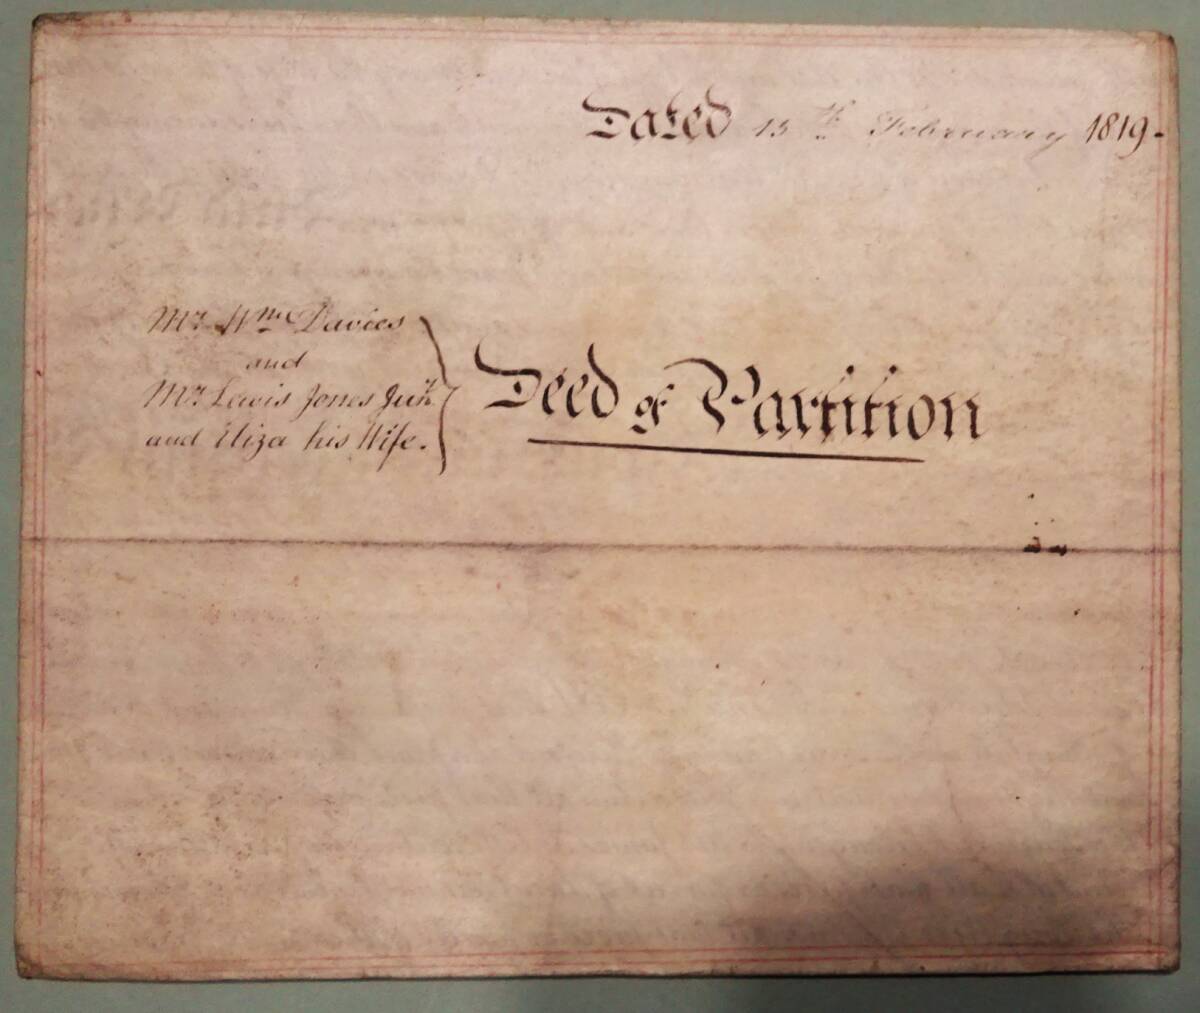 Dated 15th February 1819.
Mr. Wm. Davies
and
Mr. Lewis Jones Junr.
and Eliza his Wife.
Deed of Partition